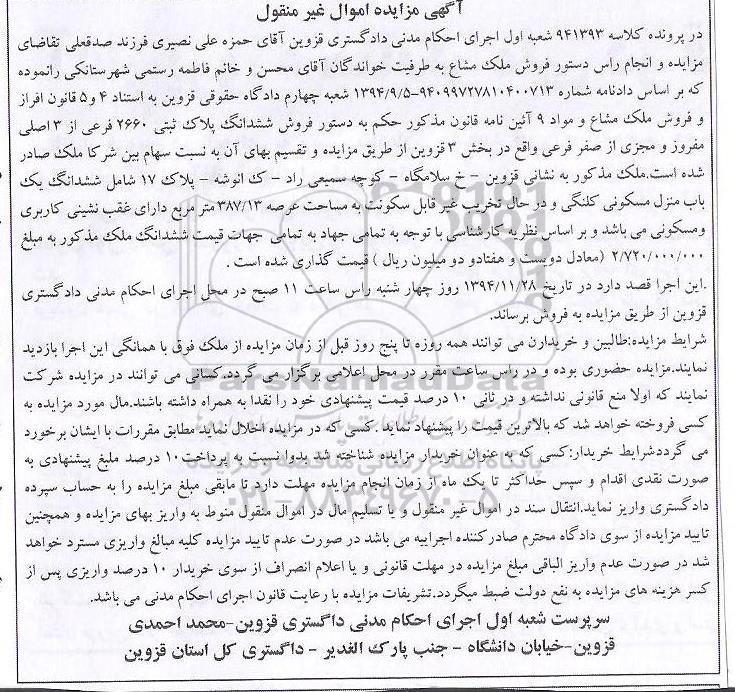 آگهی مزایده اموال غیر منقول
در پرونده کلاسه ۹۴۱۳۹۳ شعبه اول اجرای احکام مدنی دادگستری قزوین آقای حمزه علی نصیری فرزند صدقعلی تقاضای
مزایده و انجام راس دستور فروش ملک مشاع به طرفیت خواندگان آقای محسن و خانم فاطمه رستمی شهرستانکی رانموده
که بر اساس دادنامه شماره ۹۴۰۹۹۷۲۷۸۱۰۴۰۰۷۱۳-۱۳۹۴/۹/۵ شعبه چهارم دادگاه حقوقی قزوین به استناد ۴ و۵ قانون افراز
و فروش ملک مشاع و مواد ۹ آئین نامه قانون مذکور حکم به دستور فروش ششدانگ پلاک ثبتی ۲۶۶۰ فرعی از ۳ اصلی
مفروز و مجزی از صفر فرعی واقع در بخش ۳ قزوین از طریق مزایده و تقسیم بهای آن به نسبت سهام بین شرکا ملک صادر
شده است.ملک مذکور به نشانی قزوین - خ سلامگاه - کوچه سمیعی راد - ک انوشه - پلاک ۱۷ شامل ششدانگ یک
باب منزل مسکونی کلنگی و در حال تخریب غیر قابل سکونت به مساحت عرصه ۳۸۷/۱۳ متر مربع دارای عقب نشینی کاربری
ومسکونی می باشد و بر اساس نظریه کارشناسی با توجه به تمامی جهاد به تمامی جهات قیمت ششدانگ ملک مذکور به مبلغ
۲/۷۲۰/۰۰۰/۰۰۰ (معادل دویست و هفتادو دو میلیون ریال ) قیمت گذاری شده است .
.این اجرا قصد دارد در تاریخ ۱۳۹۴/۱۱/۲۸ روز چهار شنبه راس ساعت ۱۱ صبح در محل اجرای احکام مدنی دادگستری
قزوین از طریق مزایده به فروش برساند.
شرایط مزایده:طالبین و خریداران می توانند همه روزه تا پنج روز قبل از زمان مزایده از ملک فوق با همانگی این اجرا بازدید
نمایند.مزایده حضوری بوده و در راس ساعت مقرر در محل اعلامی برگزار می گردد.کسانی می توانند در مزایده شرکت
نمایند که اولا منع قانونی نداشته و در ثانی ۱۰ درصد قیمت پیشنهادی خود را نقدا به همراه داشته باشند.مال مورد مزایده به
کسی فروخته خواهد شد که بالاترین قیمت را پیشنهاد نماید .کسی که در مزایده اخلال نماید مطابق مقررات با ایشان برخورد
می گرددشرایط خریدار:کسی که به عنوان خریدار مزایده شناخته شد بدوا نسبت به پرداخت۱۰ درصد ملبغ پیشنهادی به
صورت نقدی اقدام و سپس حداکثر تا یک ماه از زمان انجام مزایده مهلت دارد تا مابقی مبلغ مزایده را به حساب سپرده
دادگستری واریز نماید.انتقال سند در اموال غیر منقول و یا تسلیم مال در اموال منقول منوط به واریز بهای مزایده و همچنین
تایید مزایده از سوی دادگاه محترم صادرکننده اجراییه می باشد در صورت عدم تایید مزایده کلیه مبالغ واریزی مسترد خواهد
شد در صورت عدم واریز الباقی مبلغ مزایده در مهلت قانونی و یا اعلام انصراف از سوی خریدار ۱۰ درصد واریزی پس از
کسر هزینه های مزایده به نفع دولت ضبط میگردد.تشریفات مزایده با رعایت قانون اجرای احکام مدنی می باشد.
سرپرست شعبه اول اجرای احکام مدنی داگستری قزوین-محمد احمدی
قزوین-خیابان دانشگاه - جنب پارک الغدیر - داگستری کل استان قزوین
ParsNamadData
۰۲۱-۸۸۳۴۹۶۷۰-۵